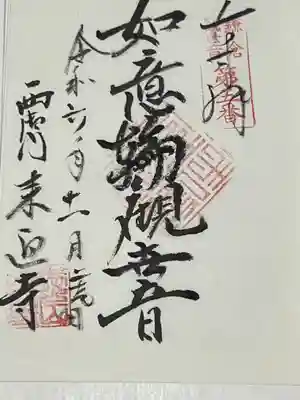 奉拝
鎌倉
第五番
如意輪觀世音
令和六年十一月
西御門 来迎寺